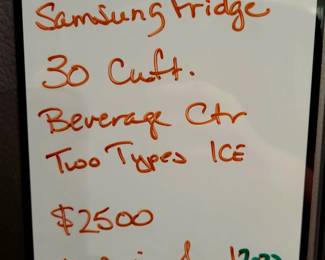 Samsung Fridge
30 Cuft.
Beverage Ctr
Two Types ICE
$2500